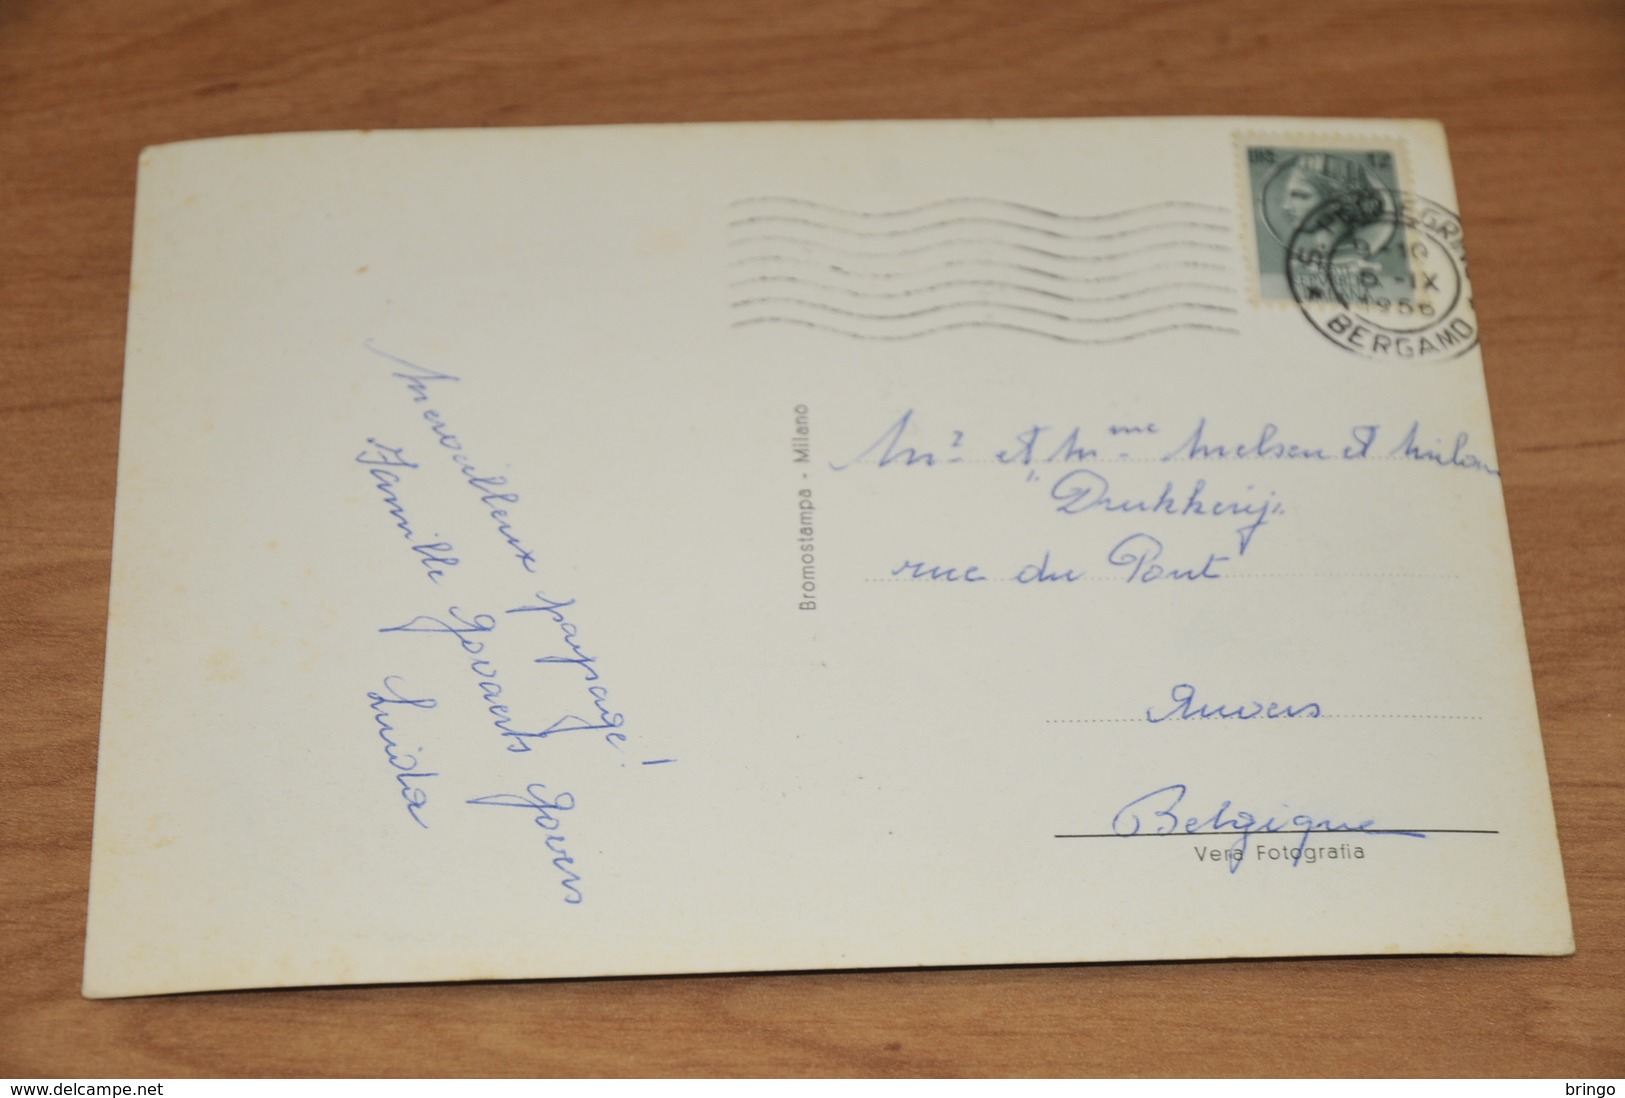 Merveilleux paysage!
Famille Govaerts Govers
Luida
Bromostampa - Milano
12
BERGAMO
1956
Mr et Mme Melsen et Milou
"Drukkerij"
rue du Pont
Anvers
Belgique
Vera Fotografia
www.delcampe.net
bringo